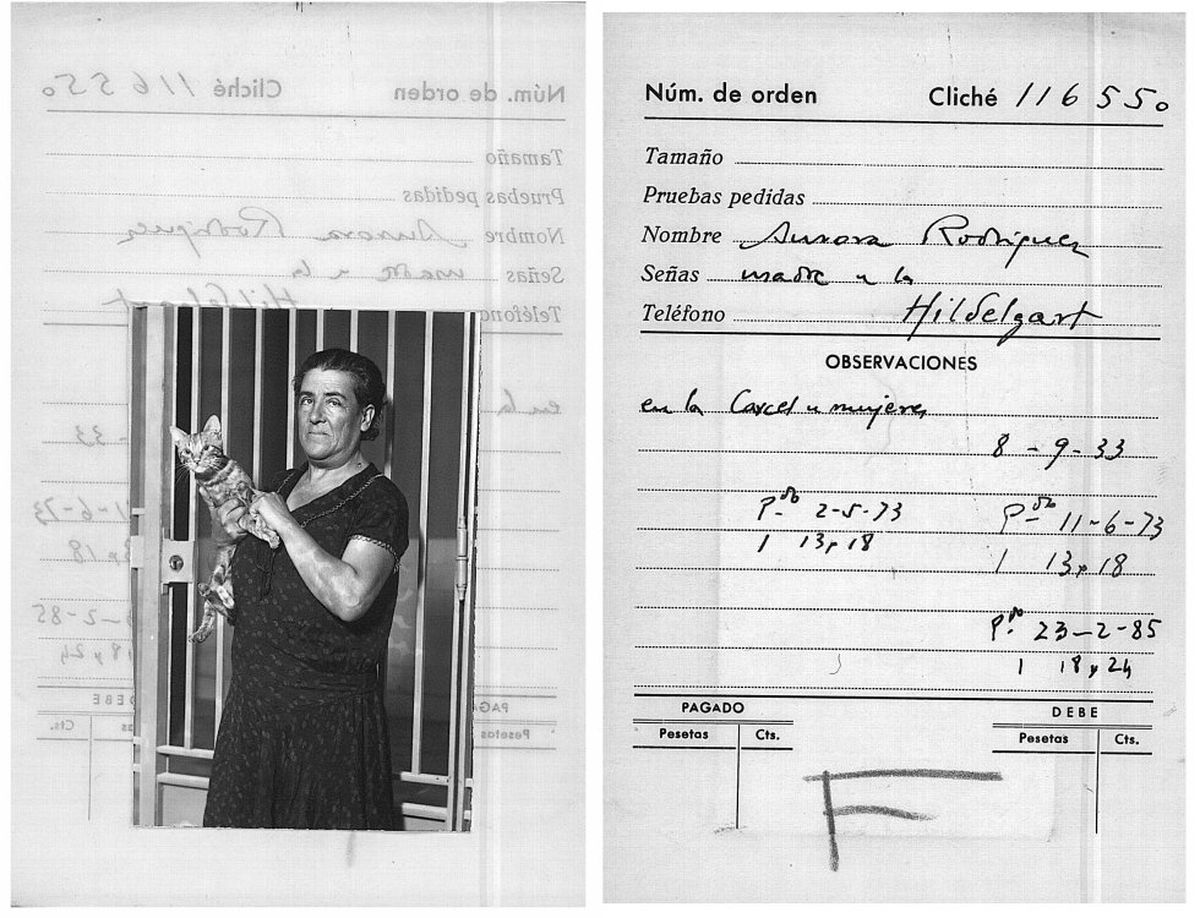 Núm. de orden Cliché 116550
Tamaño
Pruebas pedidas
Nombre Aurora Rodriguez
Señas madre de la
Teléfono Hildelgart
OBSERVACIONES
en la Carcel de mujeres
8-9-33
P.do 2-5-73 P.do 11-6-73
1 13x18 1 13x18
P.do 23-2-85
1 18x24
PAGADO DEBE
Pesetas Cts. Pesetas Cts.
F